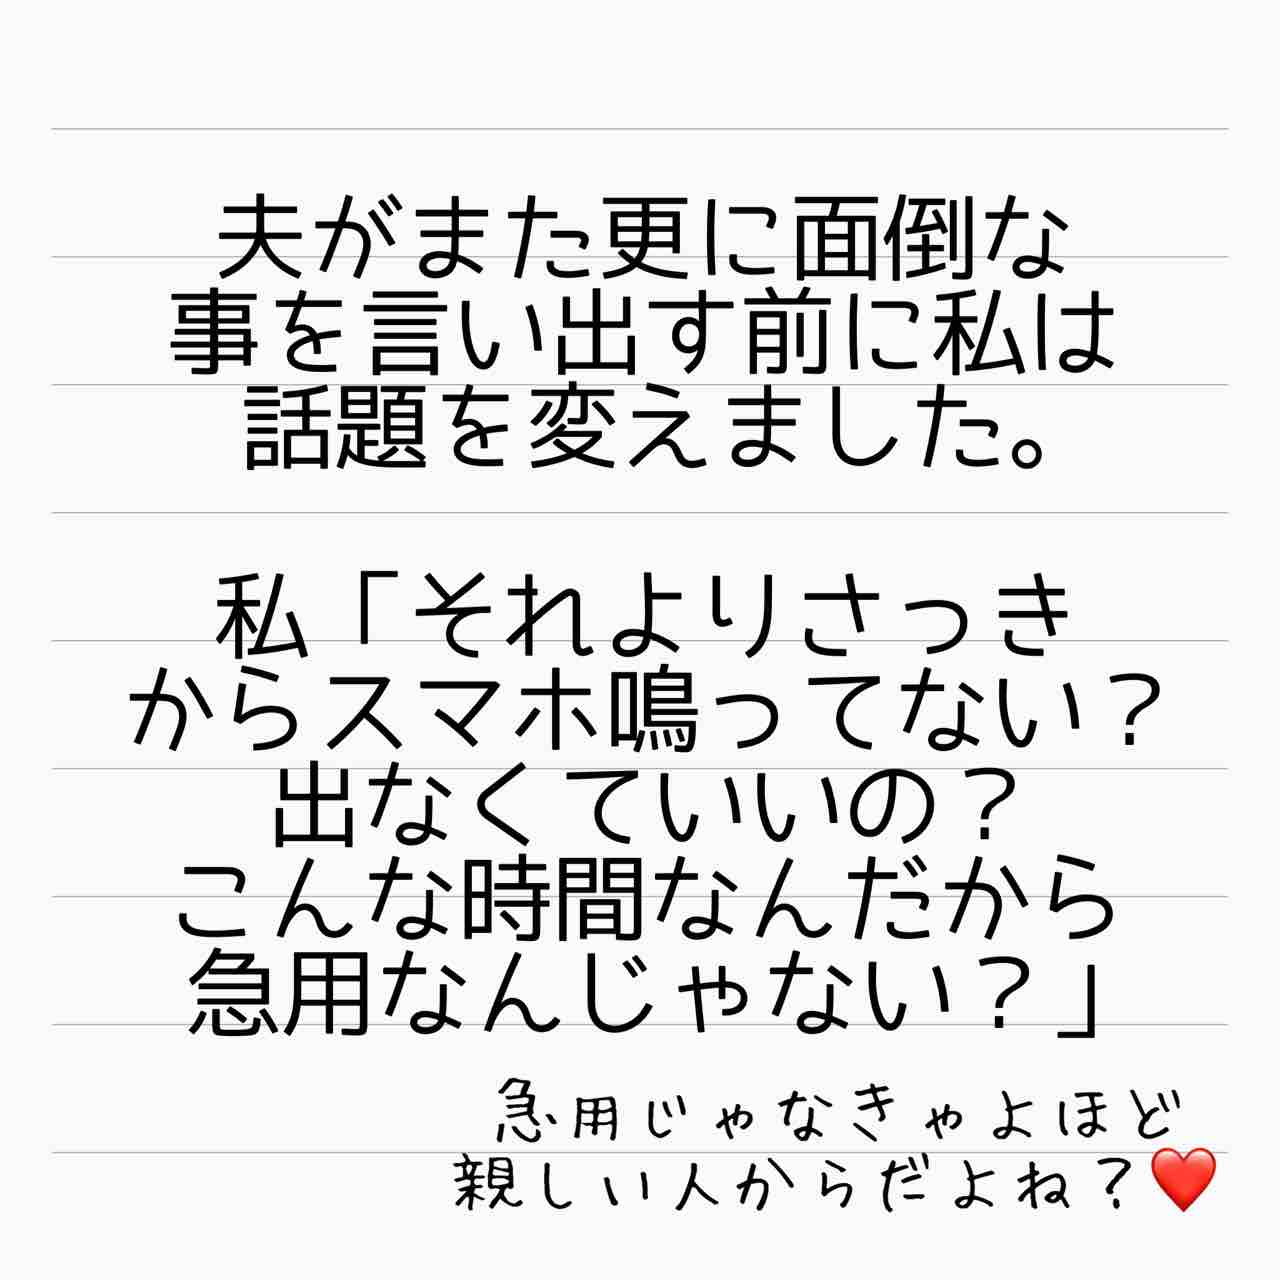 夫がまた更に面倒な
事を言い出す前に私は
話題を変えました。
私「それよりさっき
からスマホ鳴ってない?
出なくていいの?
こんな時間なんだから
急用なんじゃない?」
急用じゃなきゃよほど
親しい人からだよね?❤️